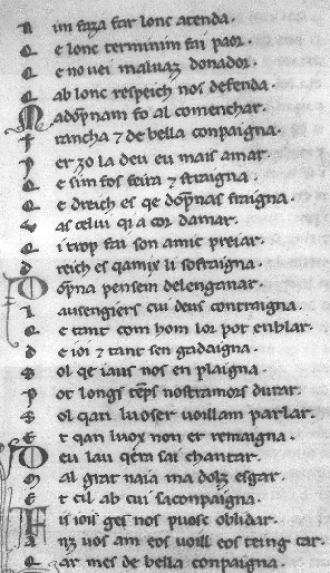 N im faza far lonc atenda.
Q e lonc terminim fai paor.
Q e no uei maluaz donador.
Q ab lonc respeich nos defenda.
Madõpnam fo al comenchar.
F rancha ⁊ de bella conpaigna.
P er zo la deu eu mais amar.
Q e sim fos feira ⁊ straigna.
Q e dreich es qe dõpnas fraigna.
V as celui qi a cor damar.
Q i trop fai son amic preiar.
D reich es qamix li sofraigna.
Dopna pensem delenganar.
L ausengiers cui deus contraigna.
Q e tant com hom lor pot enblar.
D e ioi ⁊ tant sen gadaigna.
S ol qe iaus nos en plaigna.
P ot longs tẽps nostramors durar.
S ol qan luoser uoillam parlar.
E t qan luox non er remaigna.
Deu lau qẽra sai chantar.
M al grat naia ma dolz esgar.
E t cil ab cui saconpaigna.
Fis iois ges nos puosc oblidar.
A nz uos am eos uoill eos teing car.
Q ar mes de bella conpaigna.